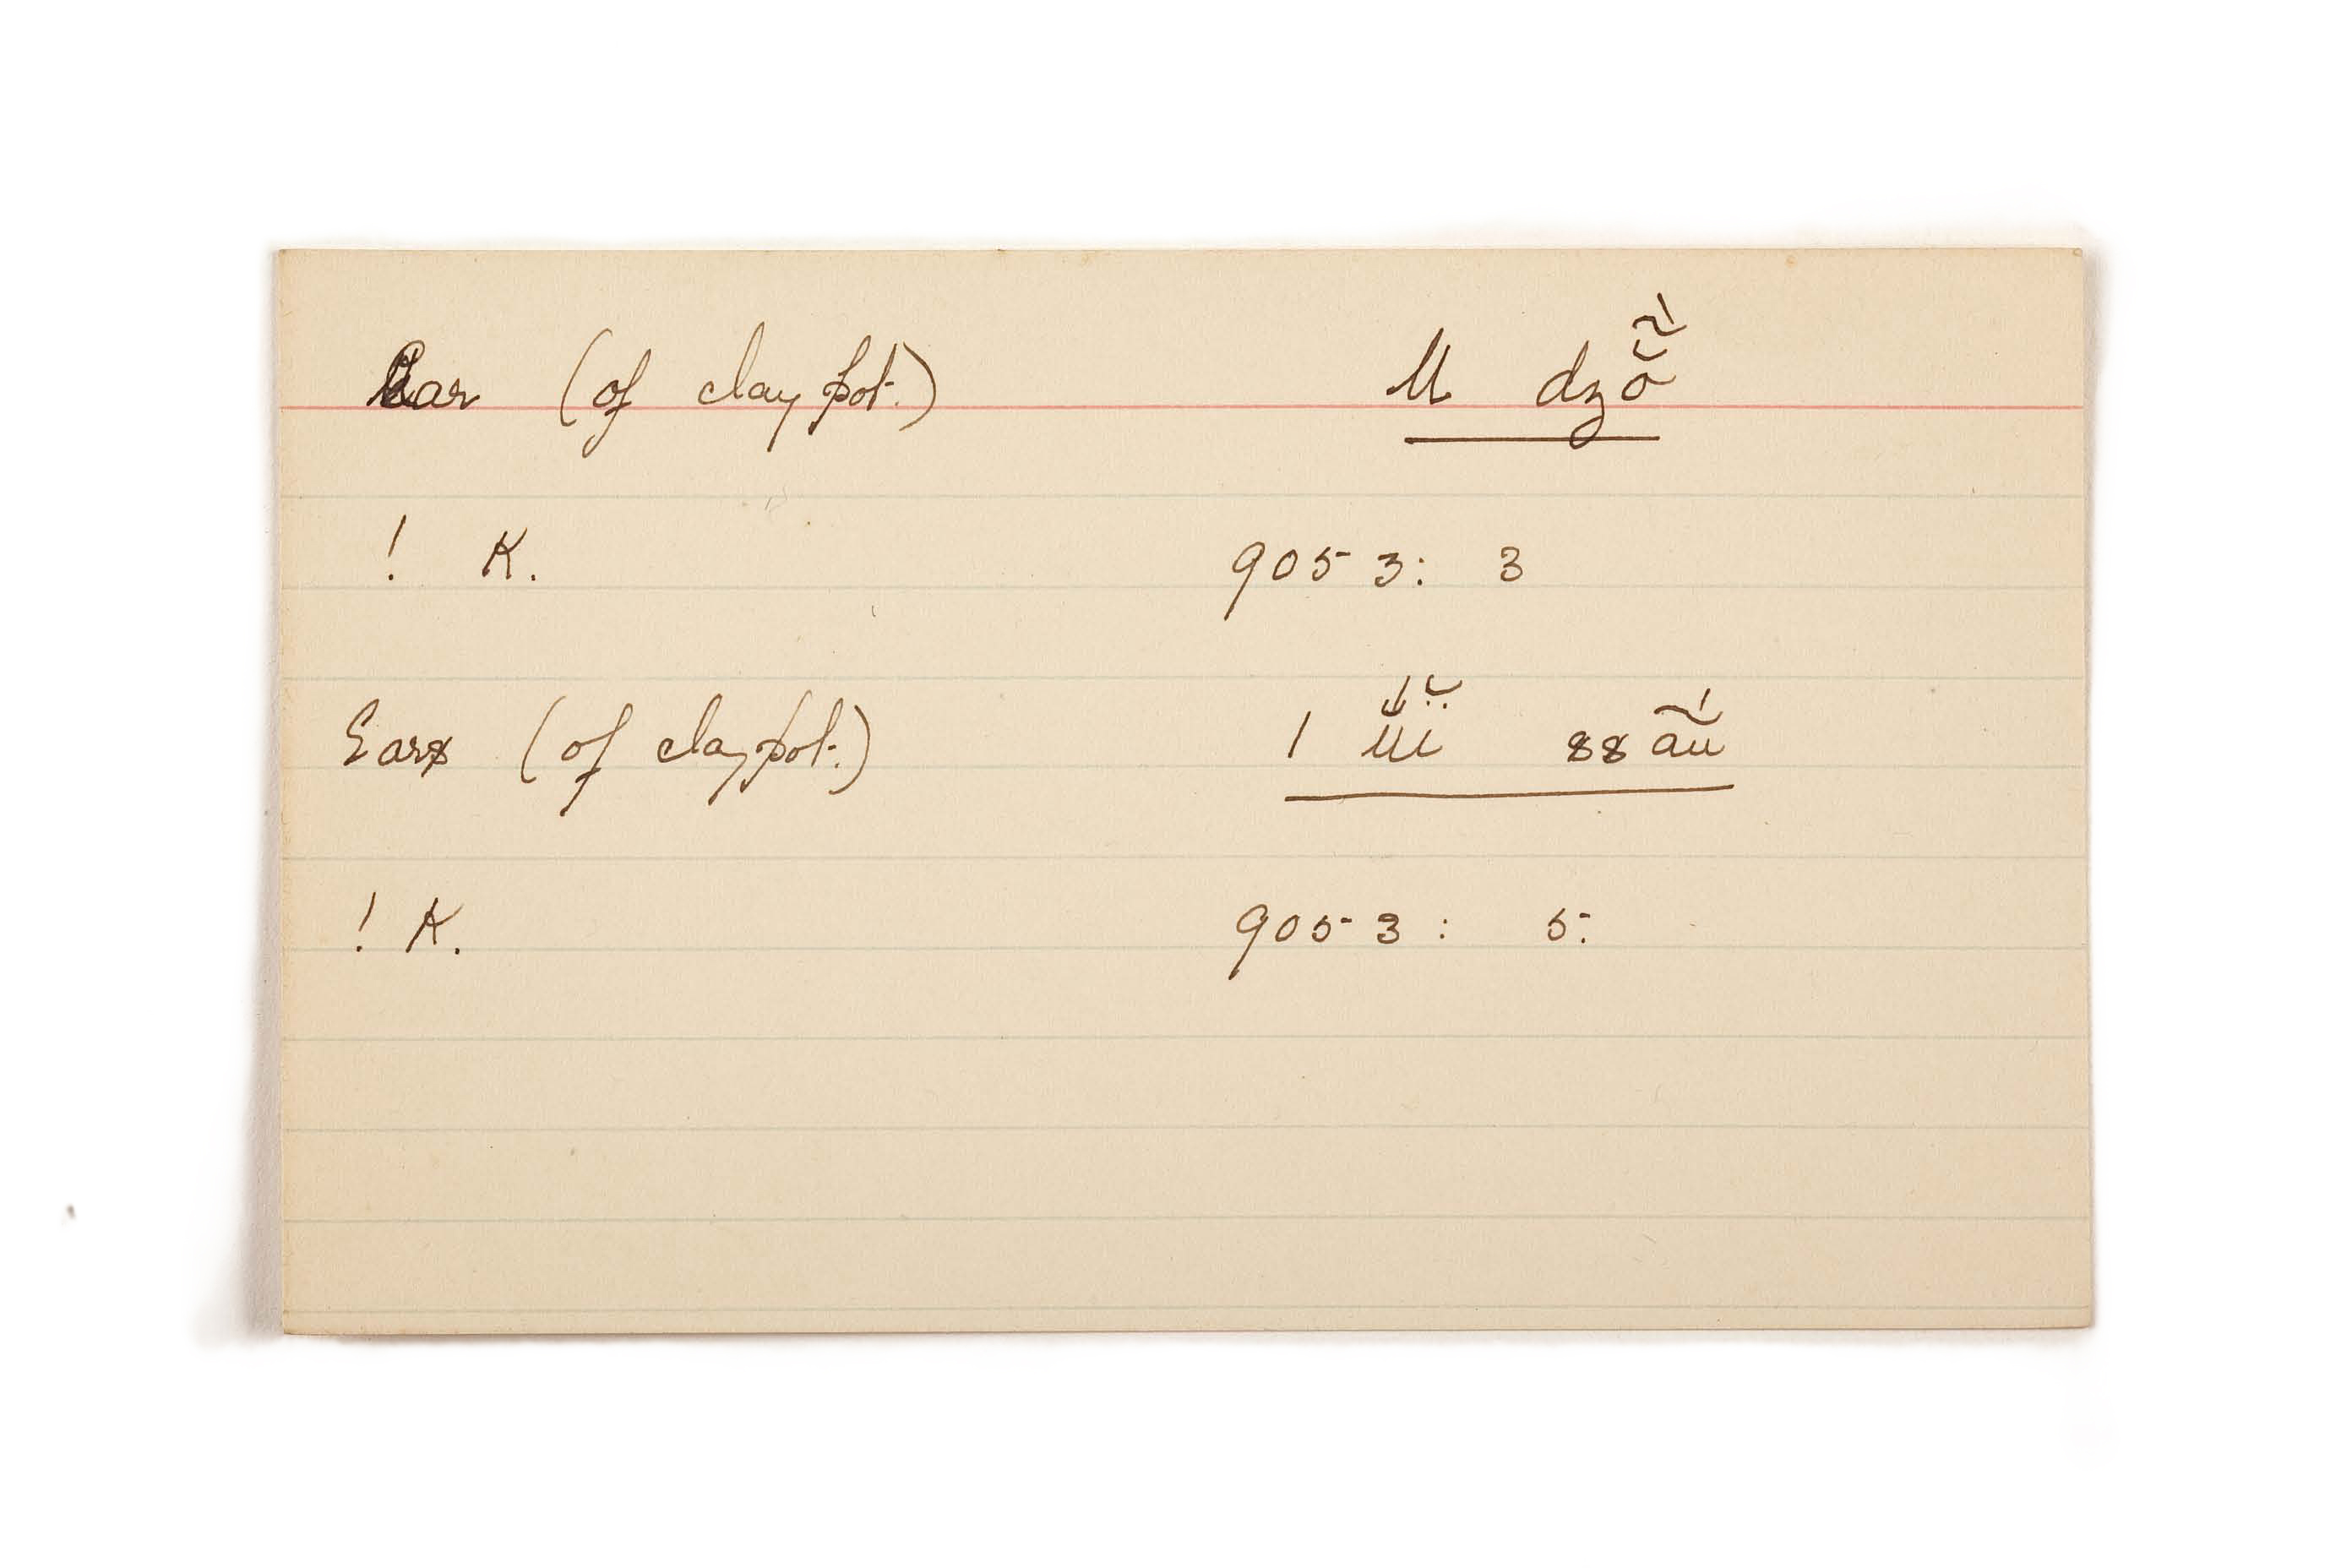 Ear (of clay pot.) U dzõ̆́
! K. 9053: 3
Ears (of clay pot.) | ŭĭ ssãú
! K. 9053: 5.